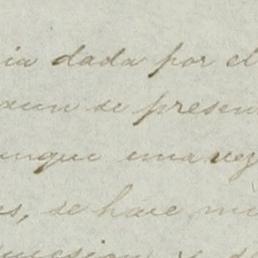 ia dada por el
aun se presen
unque una vez
es, se hace